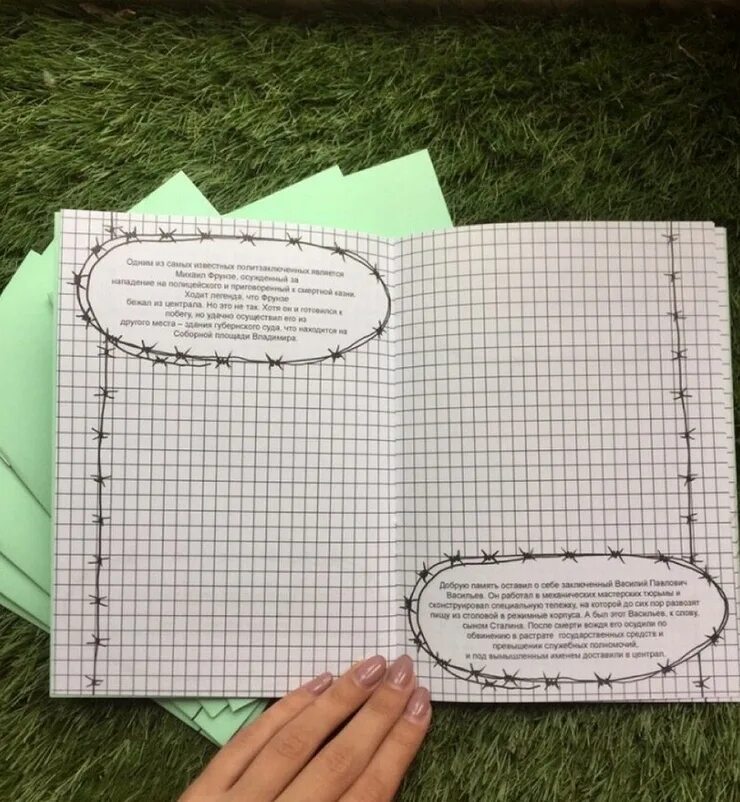 Одним из самых известных политзаключенных является
Михаил Фрунзе, осужденный за
нападение на полицейского и приговоренный к смертной казни.
Ходит легенда, что Фрунзе
бежал из централа. Но это не так. Хотя он и готовился к
побегу, но удачно осуществил его из
другого места – здания губернского суда, что находится на
Соборной площади Владимира.
Добрую память оставил о себе заключенный Василий Павлович
Васильев. Он работал в механических мастерских тюрьмы и
сконструировал специальную тележку, на которой до сих пор развозят
пищу из столовой в режимные корпуса. А был этот Васильев, к слову,
сыном Сталина. После смерти вождя его осудили по
обвинению в растрате государственных средств и
превышении служебных полномочий,
и под вымышленным именем доставили в централ.